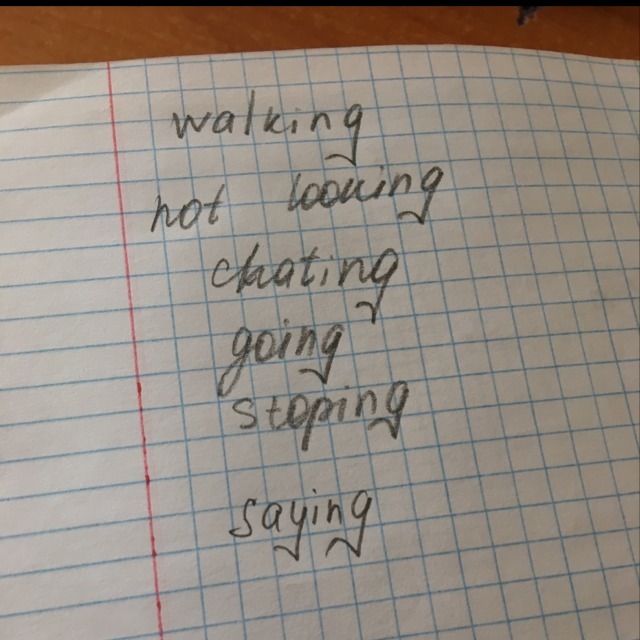 walking
not looking
chating
going
stoping
saying